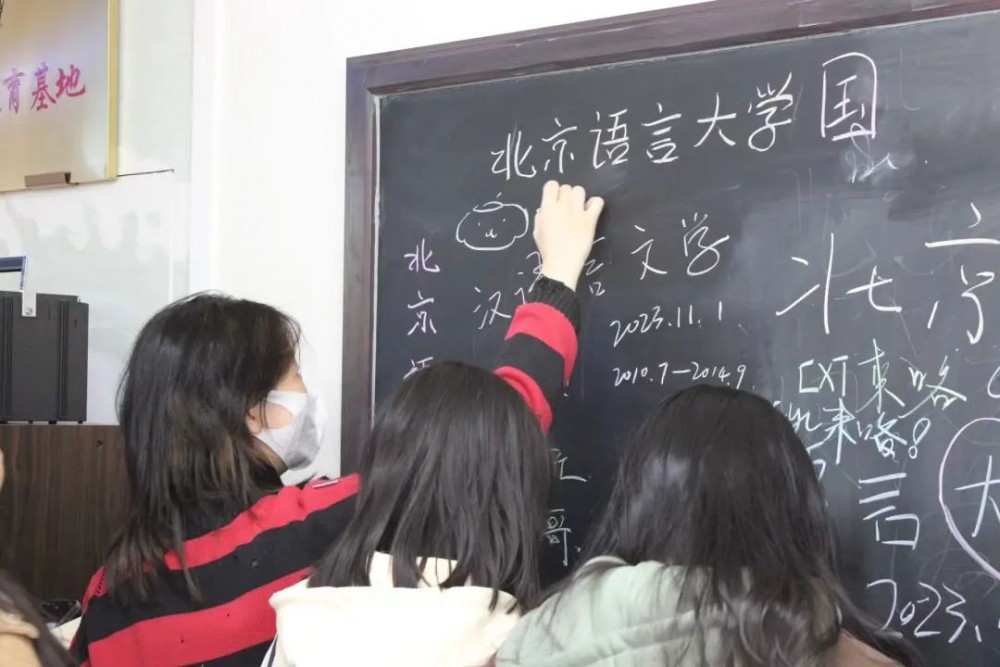 育基地
北京语言大学 国
北京
汉语言文学
2023.11.1
2010.7—2014.9
北京
CXT来咯
来喽!
言
大
2023.
哥